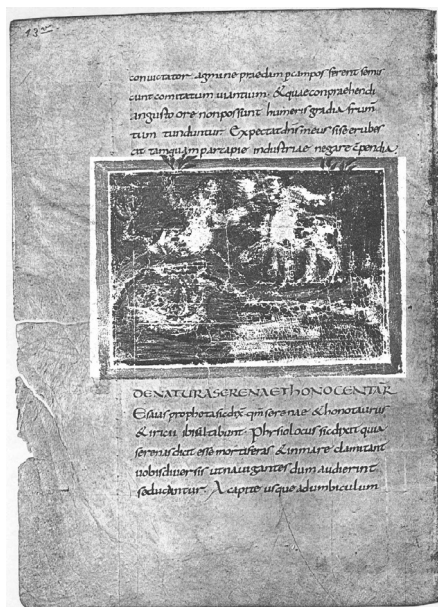 13
conuictator agmine praedam p campos ferent semis
cunt comitatum uiantium · & quae conpraehendi
angusto ore non possunt humeris gradia frum
tum tunduntur Expectat dns meus si se erubes
cit tamquam par tapie industriae negare cpendia
DE NATURA SERENAE ET HONOCENTAR
Esaias propheta sic dix qm serenae & honotaurus
& iricii ibi saltabunt · Phisiolocus sic dixit quia
serenas dicit esse mortiferas & in mare clamitant
uobis diuersis ut nauigantes dum audierint
seducantur · A capite usque ad umbiculum